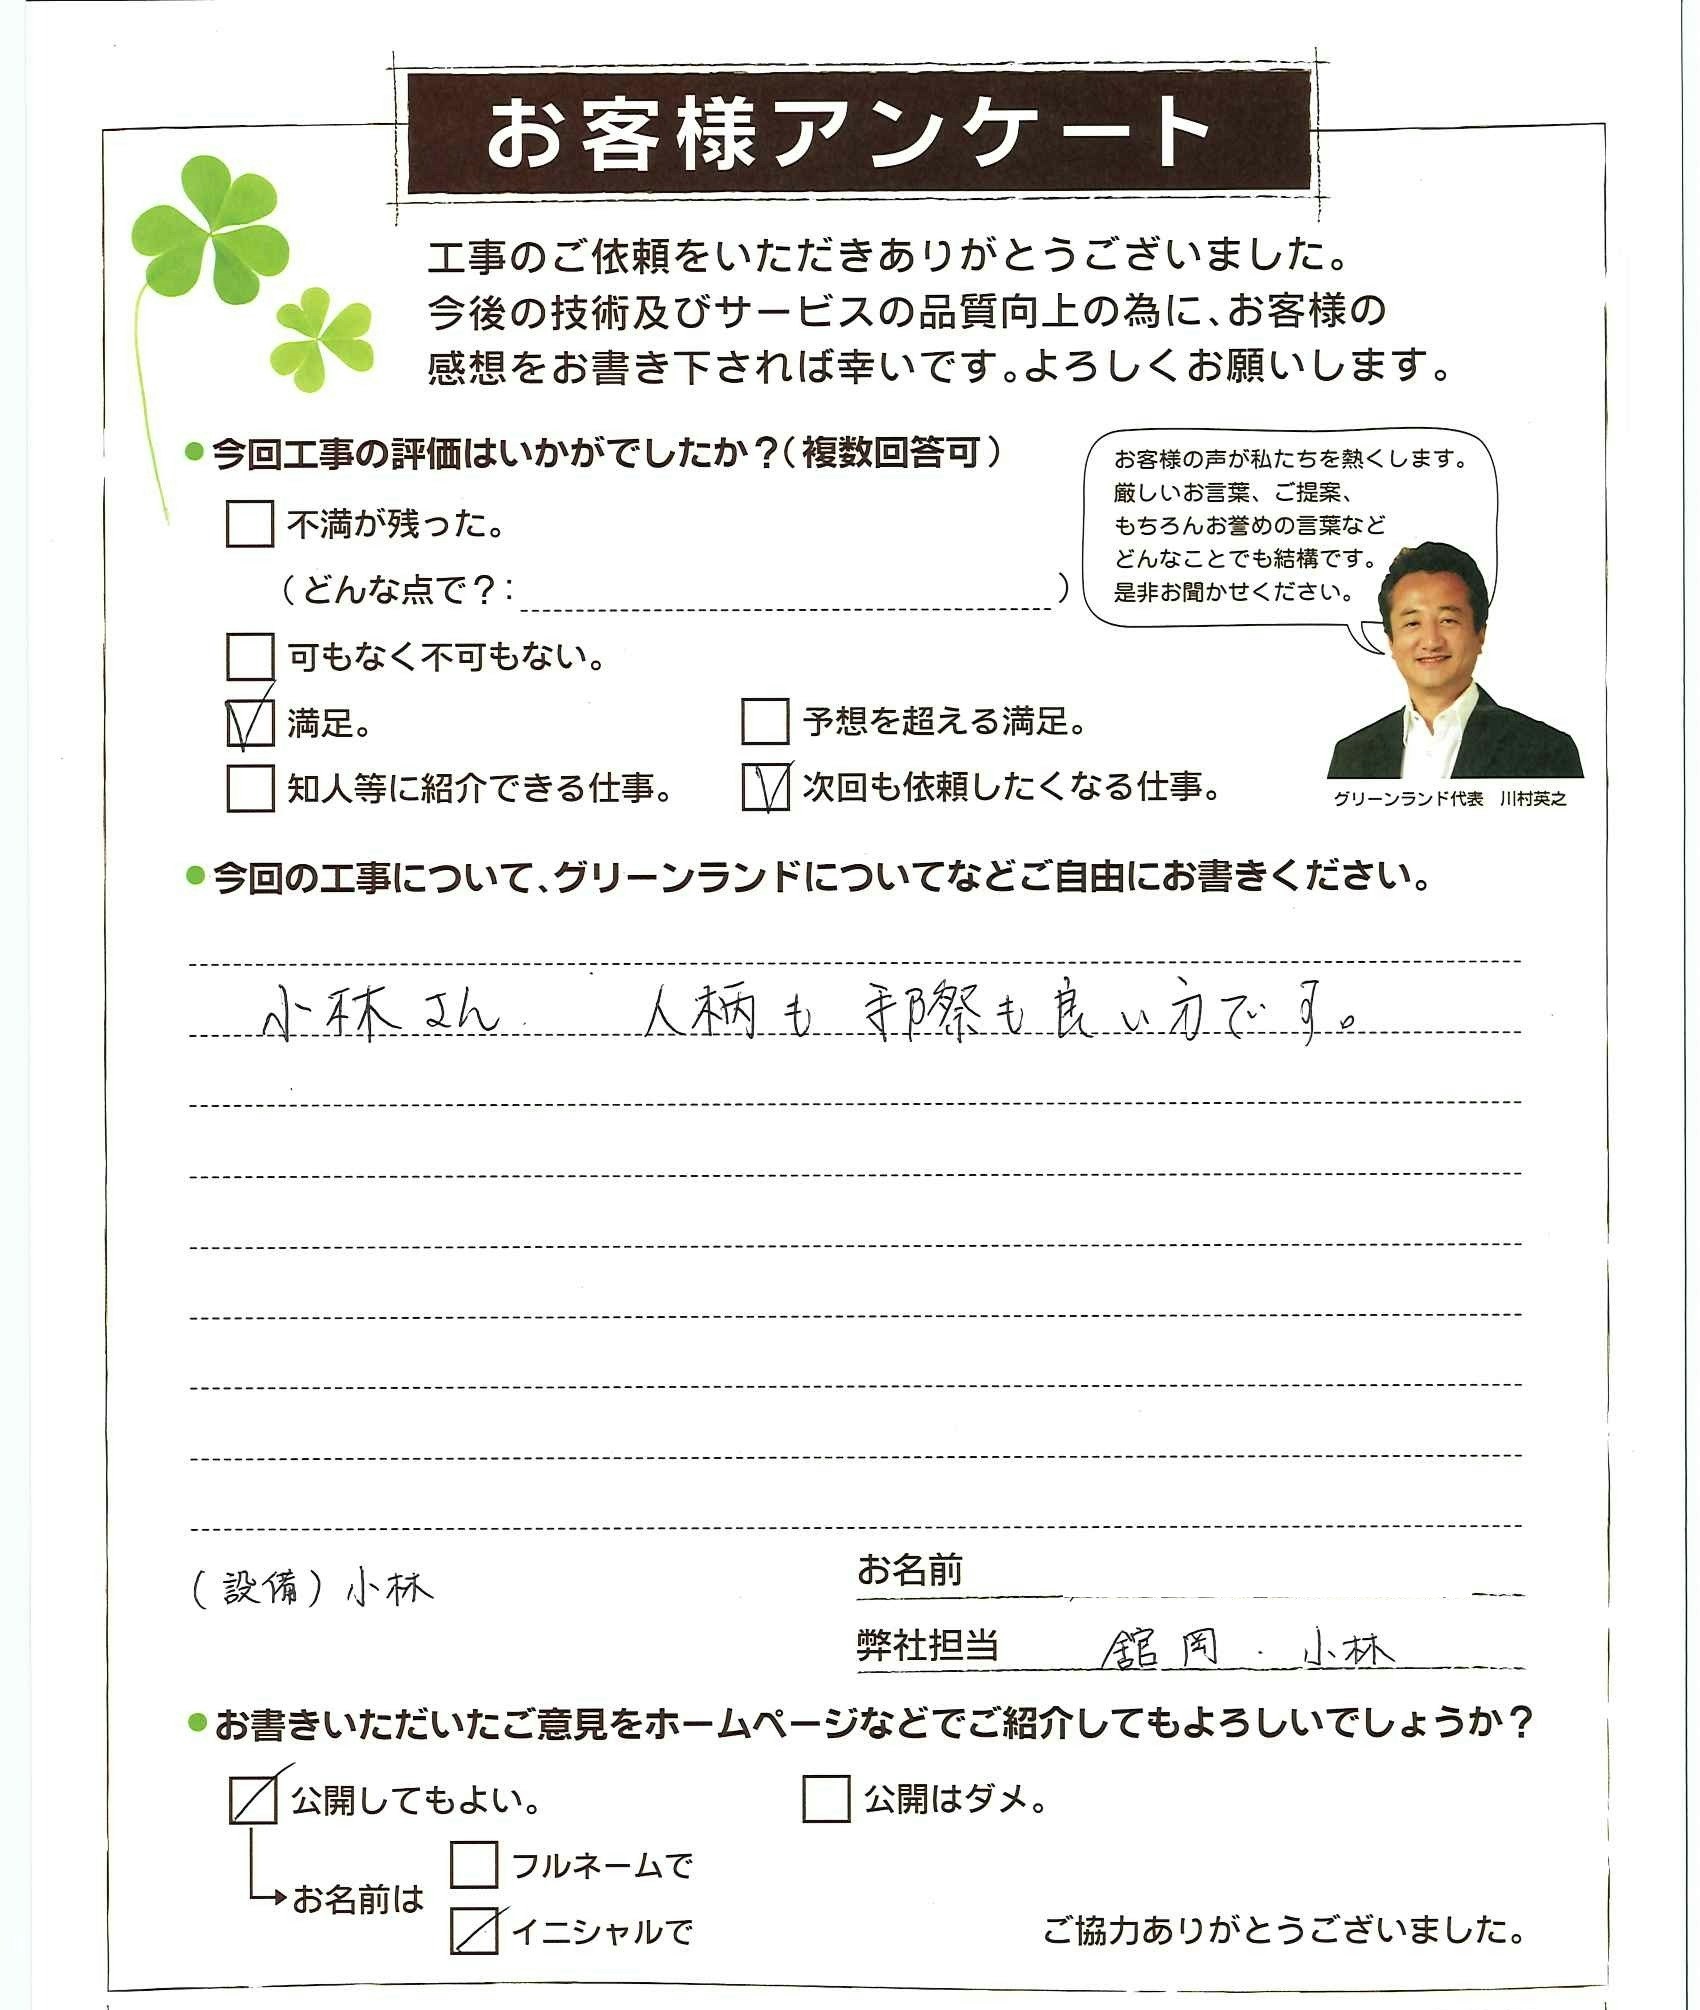 お客様アンケート
工事のご依頼をいただきありがとうございました。
今後の技術及びサービスの品質向上の為に、お客様の
感想をお書き下されば幸いです。よろしくお願いします。
●今回工事の評価はいかがでしたか？（複数回答可）
お客様の声が私たちを熱くします。
厳しいお言葉、ご提案、
もちろんお誉めの言葉など
どんなことでも結構です。
是非お聞かせください。
不満が残った。
（どんな点で？：　）
可もなく不可もない。
満足。　予想を超える満足。
知人等に紹介できる仕事。　次回も依頼したくなる仕事。
グリーンランド代表　川村英之
●今回の工事について、グリーンランドについてなどご自由にお書きください。
小林さん　人柄も　手際も良い方です。
お名前
（設備）小林
弊社担当　舘岡・小林
●お書きいただいたご意見をホームページなどでご紹介してもよろしいでしょうか？
公開してもよい。　公開はダメ。
フルネームで
お名前は
イニシャルで
ご協力ありがとうございました。